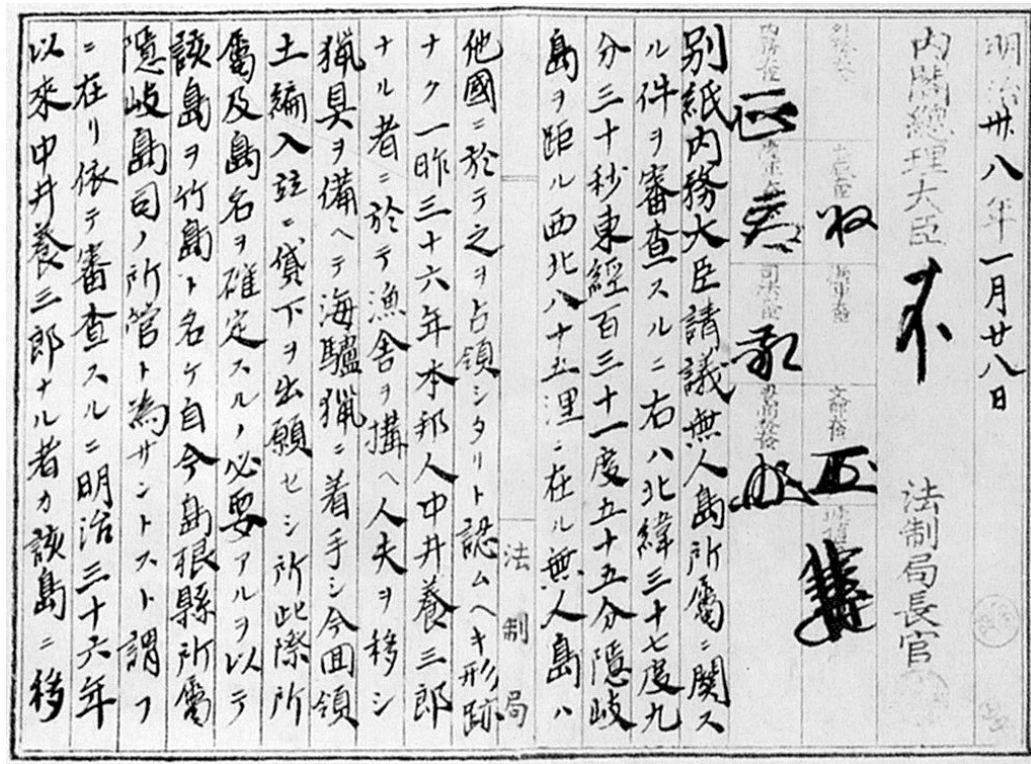 明治卅八年一月廿八日
内閣總理大臣
法制局長官
外務大臣
大藏大臣
海軍大臣
文部大臣
逓信大臣
内務大臣
陸軍大臣
司法大臣
農商務大臣
別紙内務大臣請議無人島所屬ニ関ス
ル件ヲ審査スルニ右ハ北緯三十七度九
分三十秒東經百三十一度五十五分隠岐
島ヲ距ル西北八十五浬ニ在ル無人島ハ
法制局
他國ニ於テ之ヲ占領シタリト認ムヘキ形跡
ナク一昨三十六年本邦人中井養三郎
ナル者ニ於テ漁舎ヲ搆ヘ人夫ヲ移シ
猟具ヲ備ヘテ海驢猟ニ着手シ今回領
土編入竝ニ貸下ヲ出願セシ所此際所
屬及島名ヲ確定スルノ必要アルヲ以テ
該島ヲ竹島ト名ケ自今島根縣所屬
隠岐島司ノ所管ト為サントスト謂フ
ニ在リ依テ審査スルニ明治三十六年
以來中井養三郎ナル者カ該島ニ移